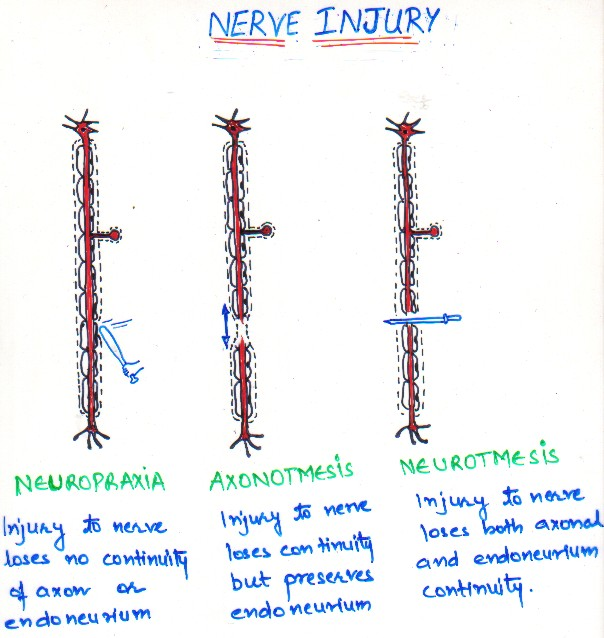 NERVE INJURY
NEUROPRAXIA
Injury to nerve
loses no continuity
of axon or
endoneurium
AXONOTMESIS
Injury to nerve
loses continuity
but preserves
endoneurium
NEUROTMESIS
Injury to nerve
loses both axonal
and endoneurium
continuity.